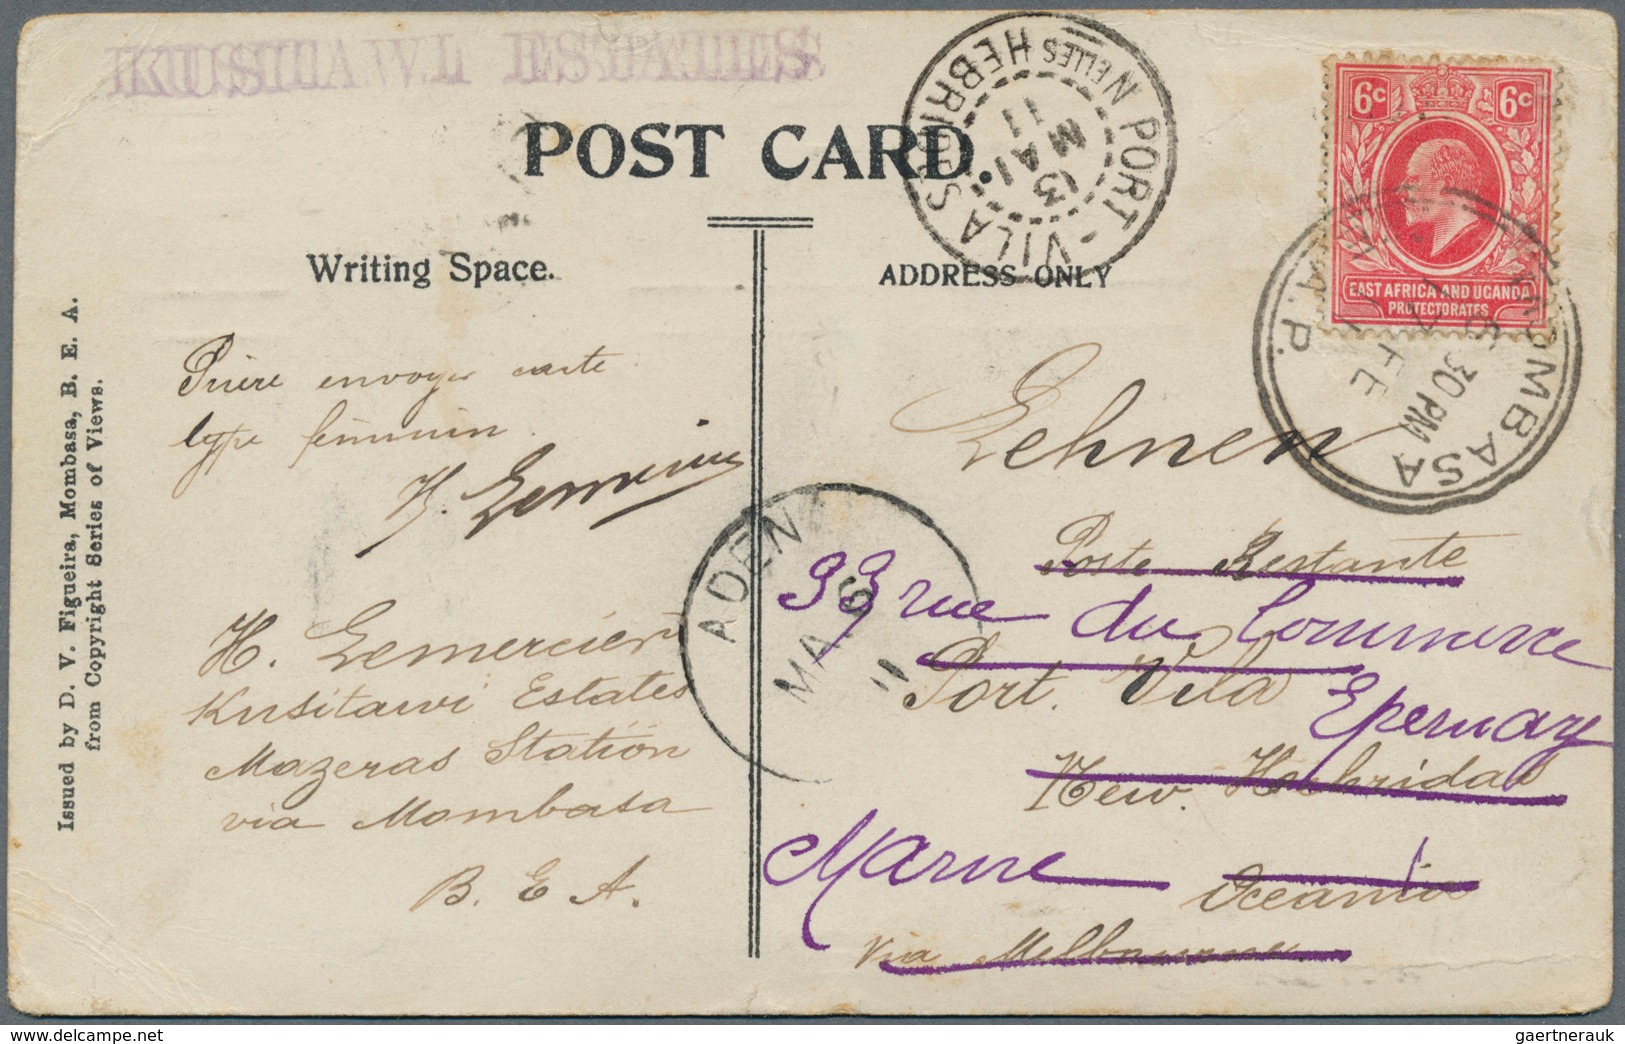 KUSITAWI ESTATES
POST CARD.
PORT-VILA
NELLES HEBRIDES
13
MAI
11
6c 6c
EAST AFRICA AND UGANDA
PROTECTORATES
MOMBASA
30 PM
FE
Writing Space.
ADDRESS ONLY
Issued by D. V. Figueira, Mombasa, B. E. A.
from Copyright Series of Views.
Prière envoyer carte
type féminin.
H. Lemercier
ADEN
MA. 6
11
H. Lemercier
Kusitawi Estates
Mazeras Station
via Mombasa
B. E. A.
Lehnen
Poste Restante
33 rue du Commerce
Port. Vila
Epernay
New. Hebridas
Marne
Oceania
via Melbourne
gaertnerauk
www.delcampe.net